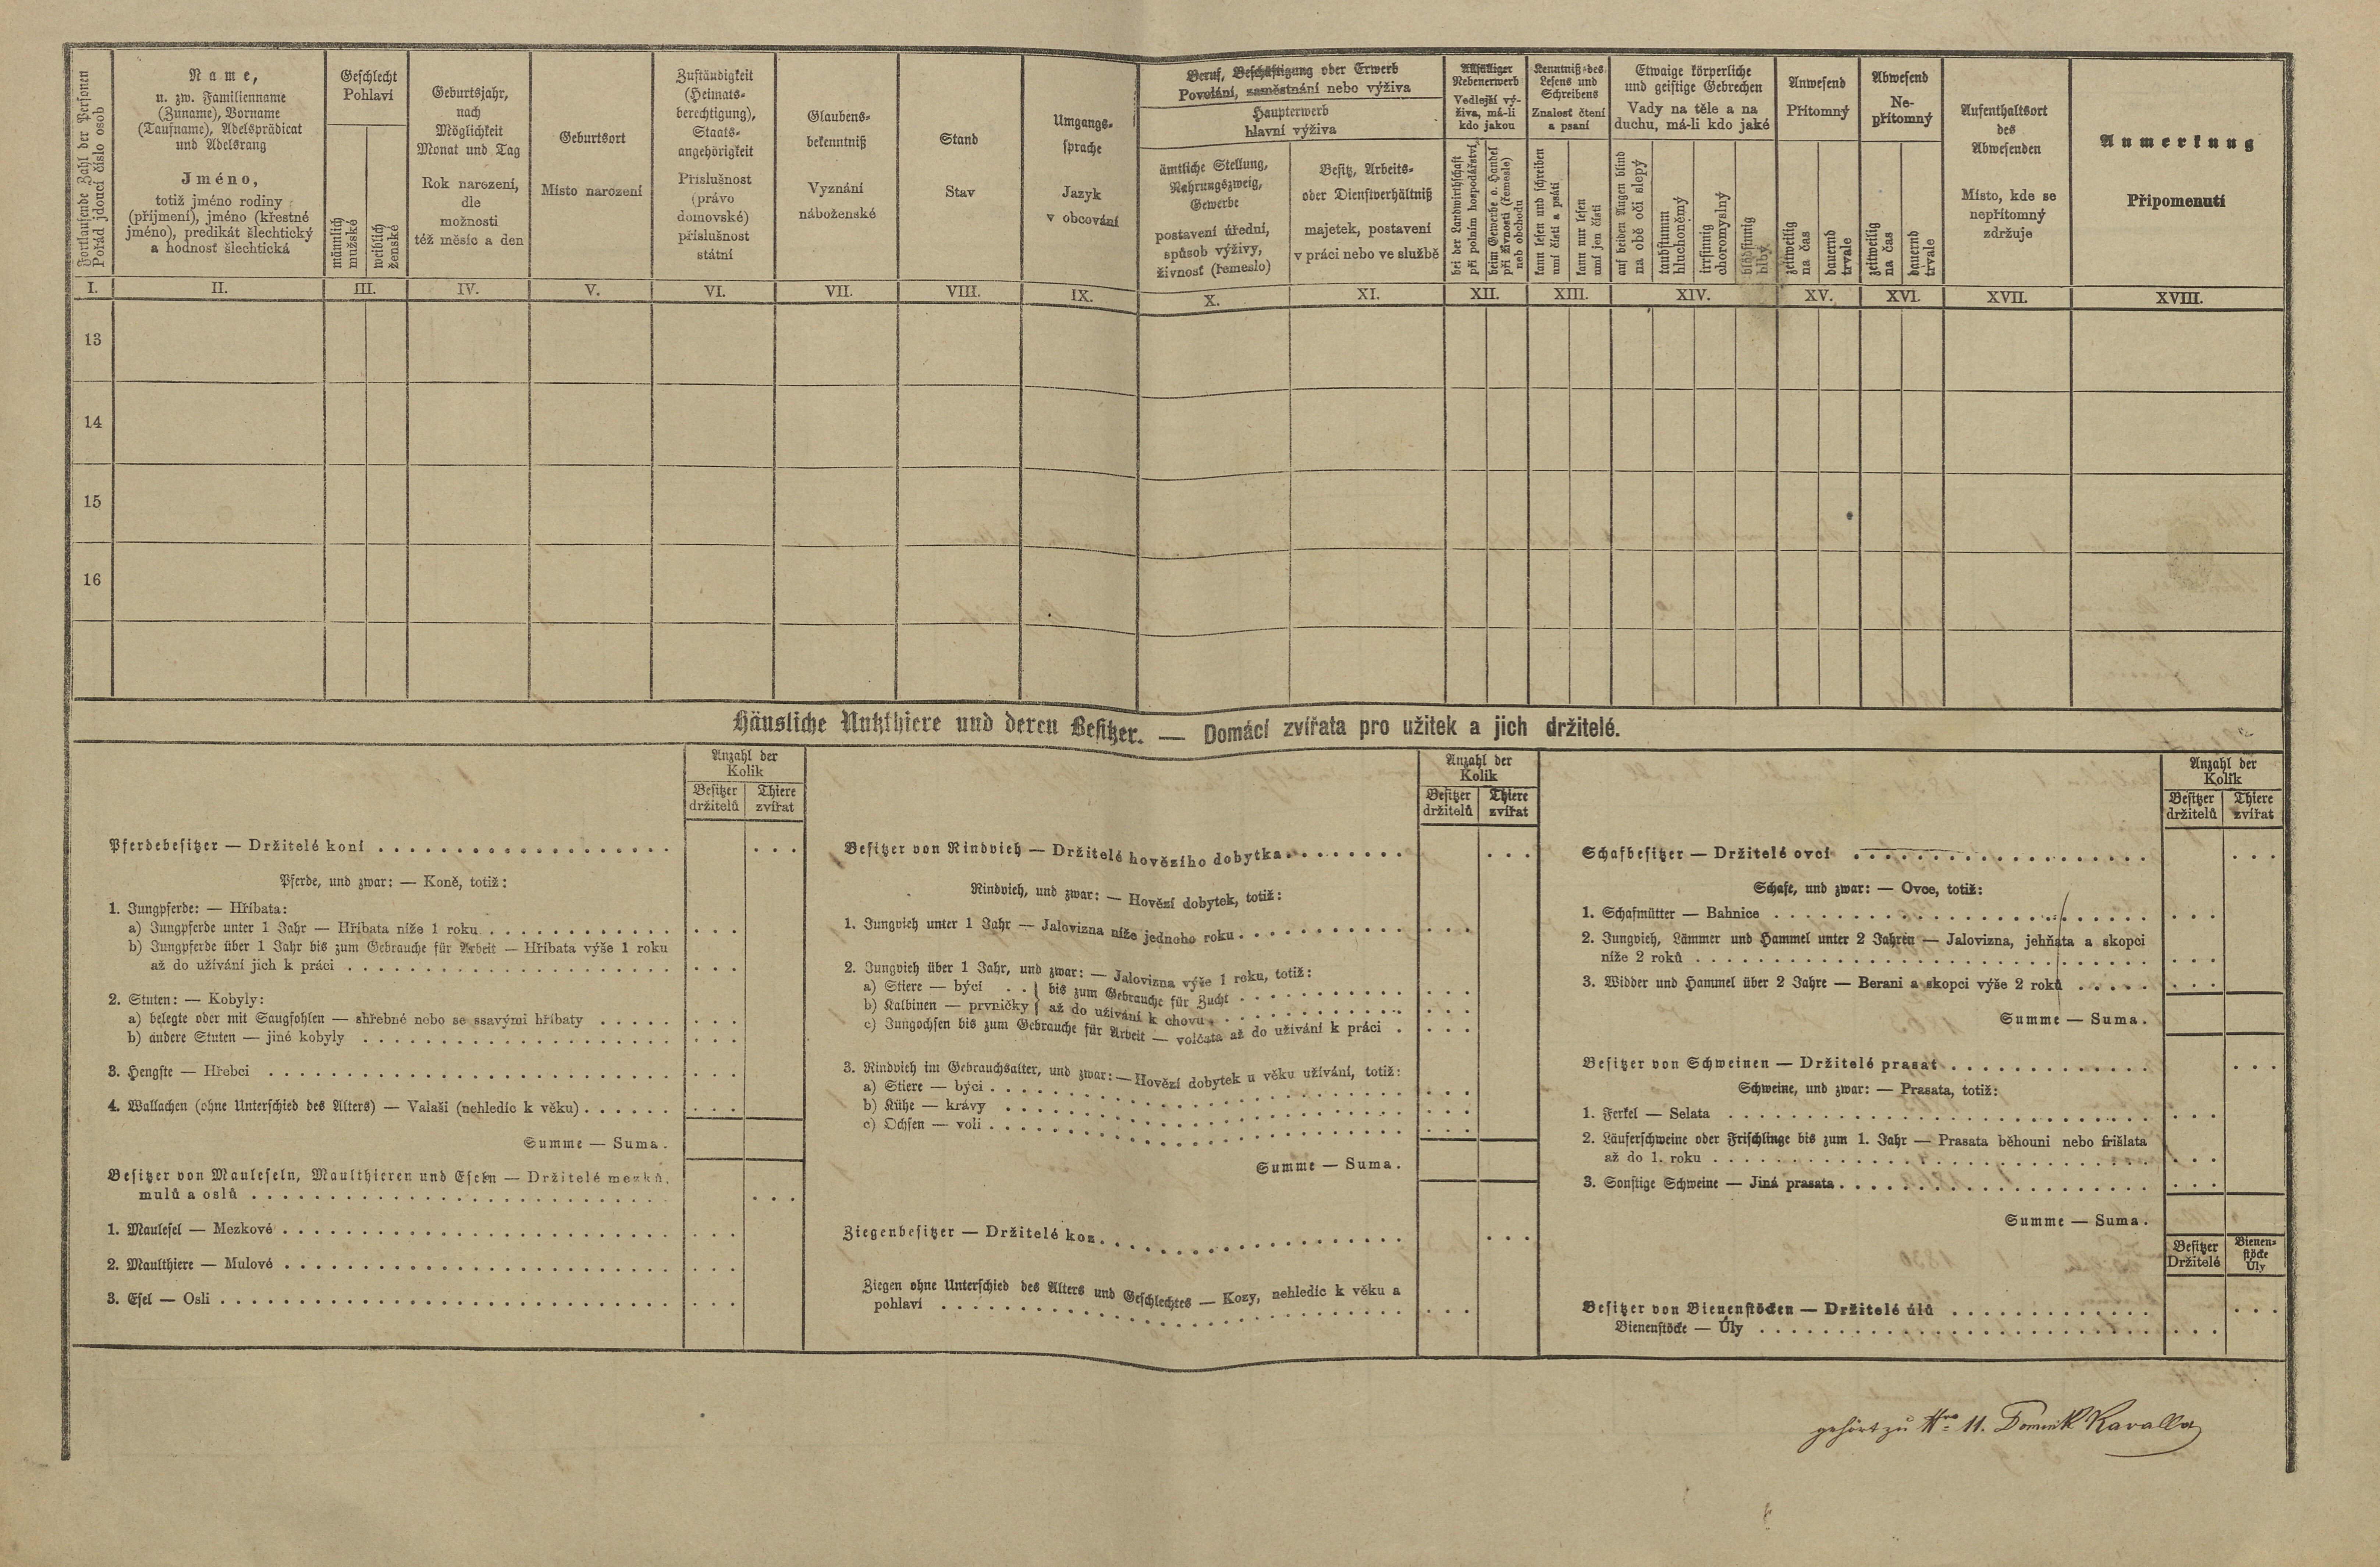 Fortlaufende Zahl der Personen
Pořád jdoucí číslo osob
Name,
u. zw. Familienname
(Zuname), Vorname
(Taufname), Adelsprädicat
und Adelsrang
Jméno,
totiž jméno rodiny
(příjmení), jméno (křestné
jméno), predikát šlechtický
a hodnosť šlechtická
Geschlecht
Pohlaví
männlich
mužské
weiblich
ženské
Geburtsjahr,
nach
Möglichkeit
Monat und Tag
Rok narození,
dle
možnosti
též měsíc a den
Geburtsort
Místo narození
Zuständigkeit
(Heimats-
berechtigung),
Staats-
angehörigkeit
Příslušnost
(právo
domovské)
příslušnost
státní
Glaubens-
bekenntniß
Vyznání
náboženské
Stand
Stav
Umgangs-
sprache
Jazyk
v obcování
Beruf, Beschäftigung oder Erwerb
Povolání, zaměstnání nebo výživa
Haupterwerb
hlavní výživa
ämtliche Stellung,
Nahrungszweig,
Gewerbe
postavení úřední,
spůsob výživy,
živnosť (řemeslo)
Besitz, Arbeits-
oder Dienstverhältniß
majetek, postavení
v práci nebo ve službě
Allfälliger
Nebenerwerb
Vedlejší vý-
živa, má-li
kdo jakou
bei der Landwirthschaft
při polním hospodářství
beim Gewerbe o. Handel
při živnosti (řemesle)
neb obchodu
Kenntniß des
Lesens und
Schreibens
Znalosť čtení
a psaní
kann lesen und schreiben
umí čísti a psáti
kann nur lesen
umí jen čísti
Etwaige körperliche
und geistige Gebrechen
Vady na těle a na
duchu, má-li kdo jaké
auf beiden Augen blind
na obě oči slepý
taubstumm
hluchoněmý
irrsinnig
choromyslný
blödsinnig
blbý
Anwesend
Přítomný
zeitweilig
na čas
dauernd
trvale
Abwesend
Ne-
přítomný
zeitweilig
na čas
dauernd
trvale
Aufenthaltsort
des
Abwesenden
Místo, kde se
nepřítomný
zdržuje
Anmerkung
Připomenutí
I. II. III. IV. V. VI. VII. VIII. IX. X. XI. XII. XIII. XIV. XV. XVI. XVII. XVIII.
13
14
15
16
Häusliche Nutzthiere und deren Besitzer. — Domácí zvířata pro užitek a jich držitelé.
Anzahl der
Kolik
Besitzer
držitelů
Thiere
zvířat
Pferdebesitzer — Držitelé koní
Pferde, und zwar: — Koně, totiž:
1. Jungpferde: — Hříbata:
a) Jungpferde unter 1 Jahr — Hříbata níže 1 roku
b) Jungpferde über 1 Jahr bis zum Gebrauche für Arbeit — Hříbata výše 1 roku
až do užívání jich k práci
2. Stuten: — Kobyly:
a) belegte oder mit Saugfohlen — shřebné nebo se ssavými hříbaty
b) andere Stuten — jiné kobyly
3. Hengste — Hřebci
4. Wallachen (ohne Unterschied des Alters) — Valaši (nehledíc k věku)
Summe — Suma.
Besitzer von Mauleseln, Maulthieren und Eseln — Držitelé mezků,
mulů a oslů
1. Maulesel — Mezkové
2. Maulthiere — Mulové
3. Esel — Osli
Anzahl der
Kolik
Besitzer
držitelů
Thiere
zvířat
Besitzer von Rindvieh — Držitelé hovězího dobytka
Rindvieh, und zwar: — Hovězí dobytek, totiž:
1. Jungvieh unter 1 Jahr — Jalovizna níže jednoho roku
2. Jungvieh über 1 Jahr, und zwar: — Jalovizna výše 1 roku, totiž:
a) Stiere — býci . . } bis zum Gebrauche für Zucht
b) Kalbinen — prvničky } až do užívání k chovu
c) Jungochsen bis zum Gebrauche für Arbeit — volčata až do užívání k práci
3. Rindvieh im Gebrauchsalter, und zwar: — Hovězí dobytek u věku užívání, totiž:
a) Stiere — býci
b) Kühe — krávy
c) Ochsen — voli
Summe — Suma.
Ziegenbesitzer — Držitelé koz
Ziegen ohne Unterschied des Alters und Geschlechtes — Kozy, nehledíc k věku a
pohlaví
Anzahl der
Kolik
Besitzer
držitelů
Thiere
zvířat
Schafbesitzer — Držitelé ovcí
Schafe, und zwar: — Ovce, totiž:
1. Schafmütter — Bahnice
2. Jungvieh, Lämmer und Hammel unter 2 Jahren — Jalovizna, jehňata a skopci
níže 2 roků
3. Widder und Hammel über 2 Jahre — Berani a skopci výše 2 roků
Summe — Suma.
Besitzer von Schweinen — Držitelé prasat
Schweine, und zwar: — Prasata, totiž:
1. Ferkel — Selata
2. Läuferschweine oder Frischlinge bis zum 1. Jahr — Prasata běhouni nebo frišlata
až do 1. roku
3. Sonstige Schweine — Jiná prasata
Summe — Suma.
Besitzer
Držitelé
Bienen-
stöcke
Úly
Besitzer von Bienenstöcken — Držitelé úlů
Bienenstöcke — Úly
gehört zu Nro 11. Dominik Kavalla